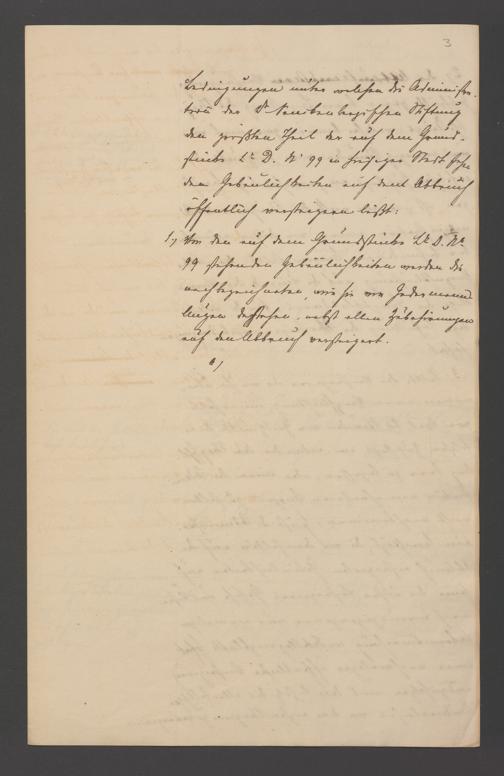 3
Bedingungen unter welchen die Administra-
tion der Dr Senckenbergischen Stiftung
den größten Theil der auf dem Grund-
stücke Lr. D. No 99 in hiesiger Stadt stehen-
den Gebäulichkeiten auf den Abbruch
öffentlich versteigern läßt:
1, Von den auf dem Grundstücke Lr. D. No
99 stehenden Gebäulichkeiten werden die
nachbezeichneten, wie sie vor Jedermanns
Augen dastehen, nebst allen Zubehörungen
auf den Abbruch versteigert.
a,